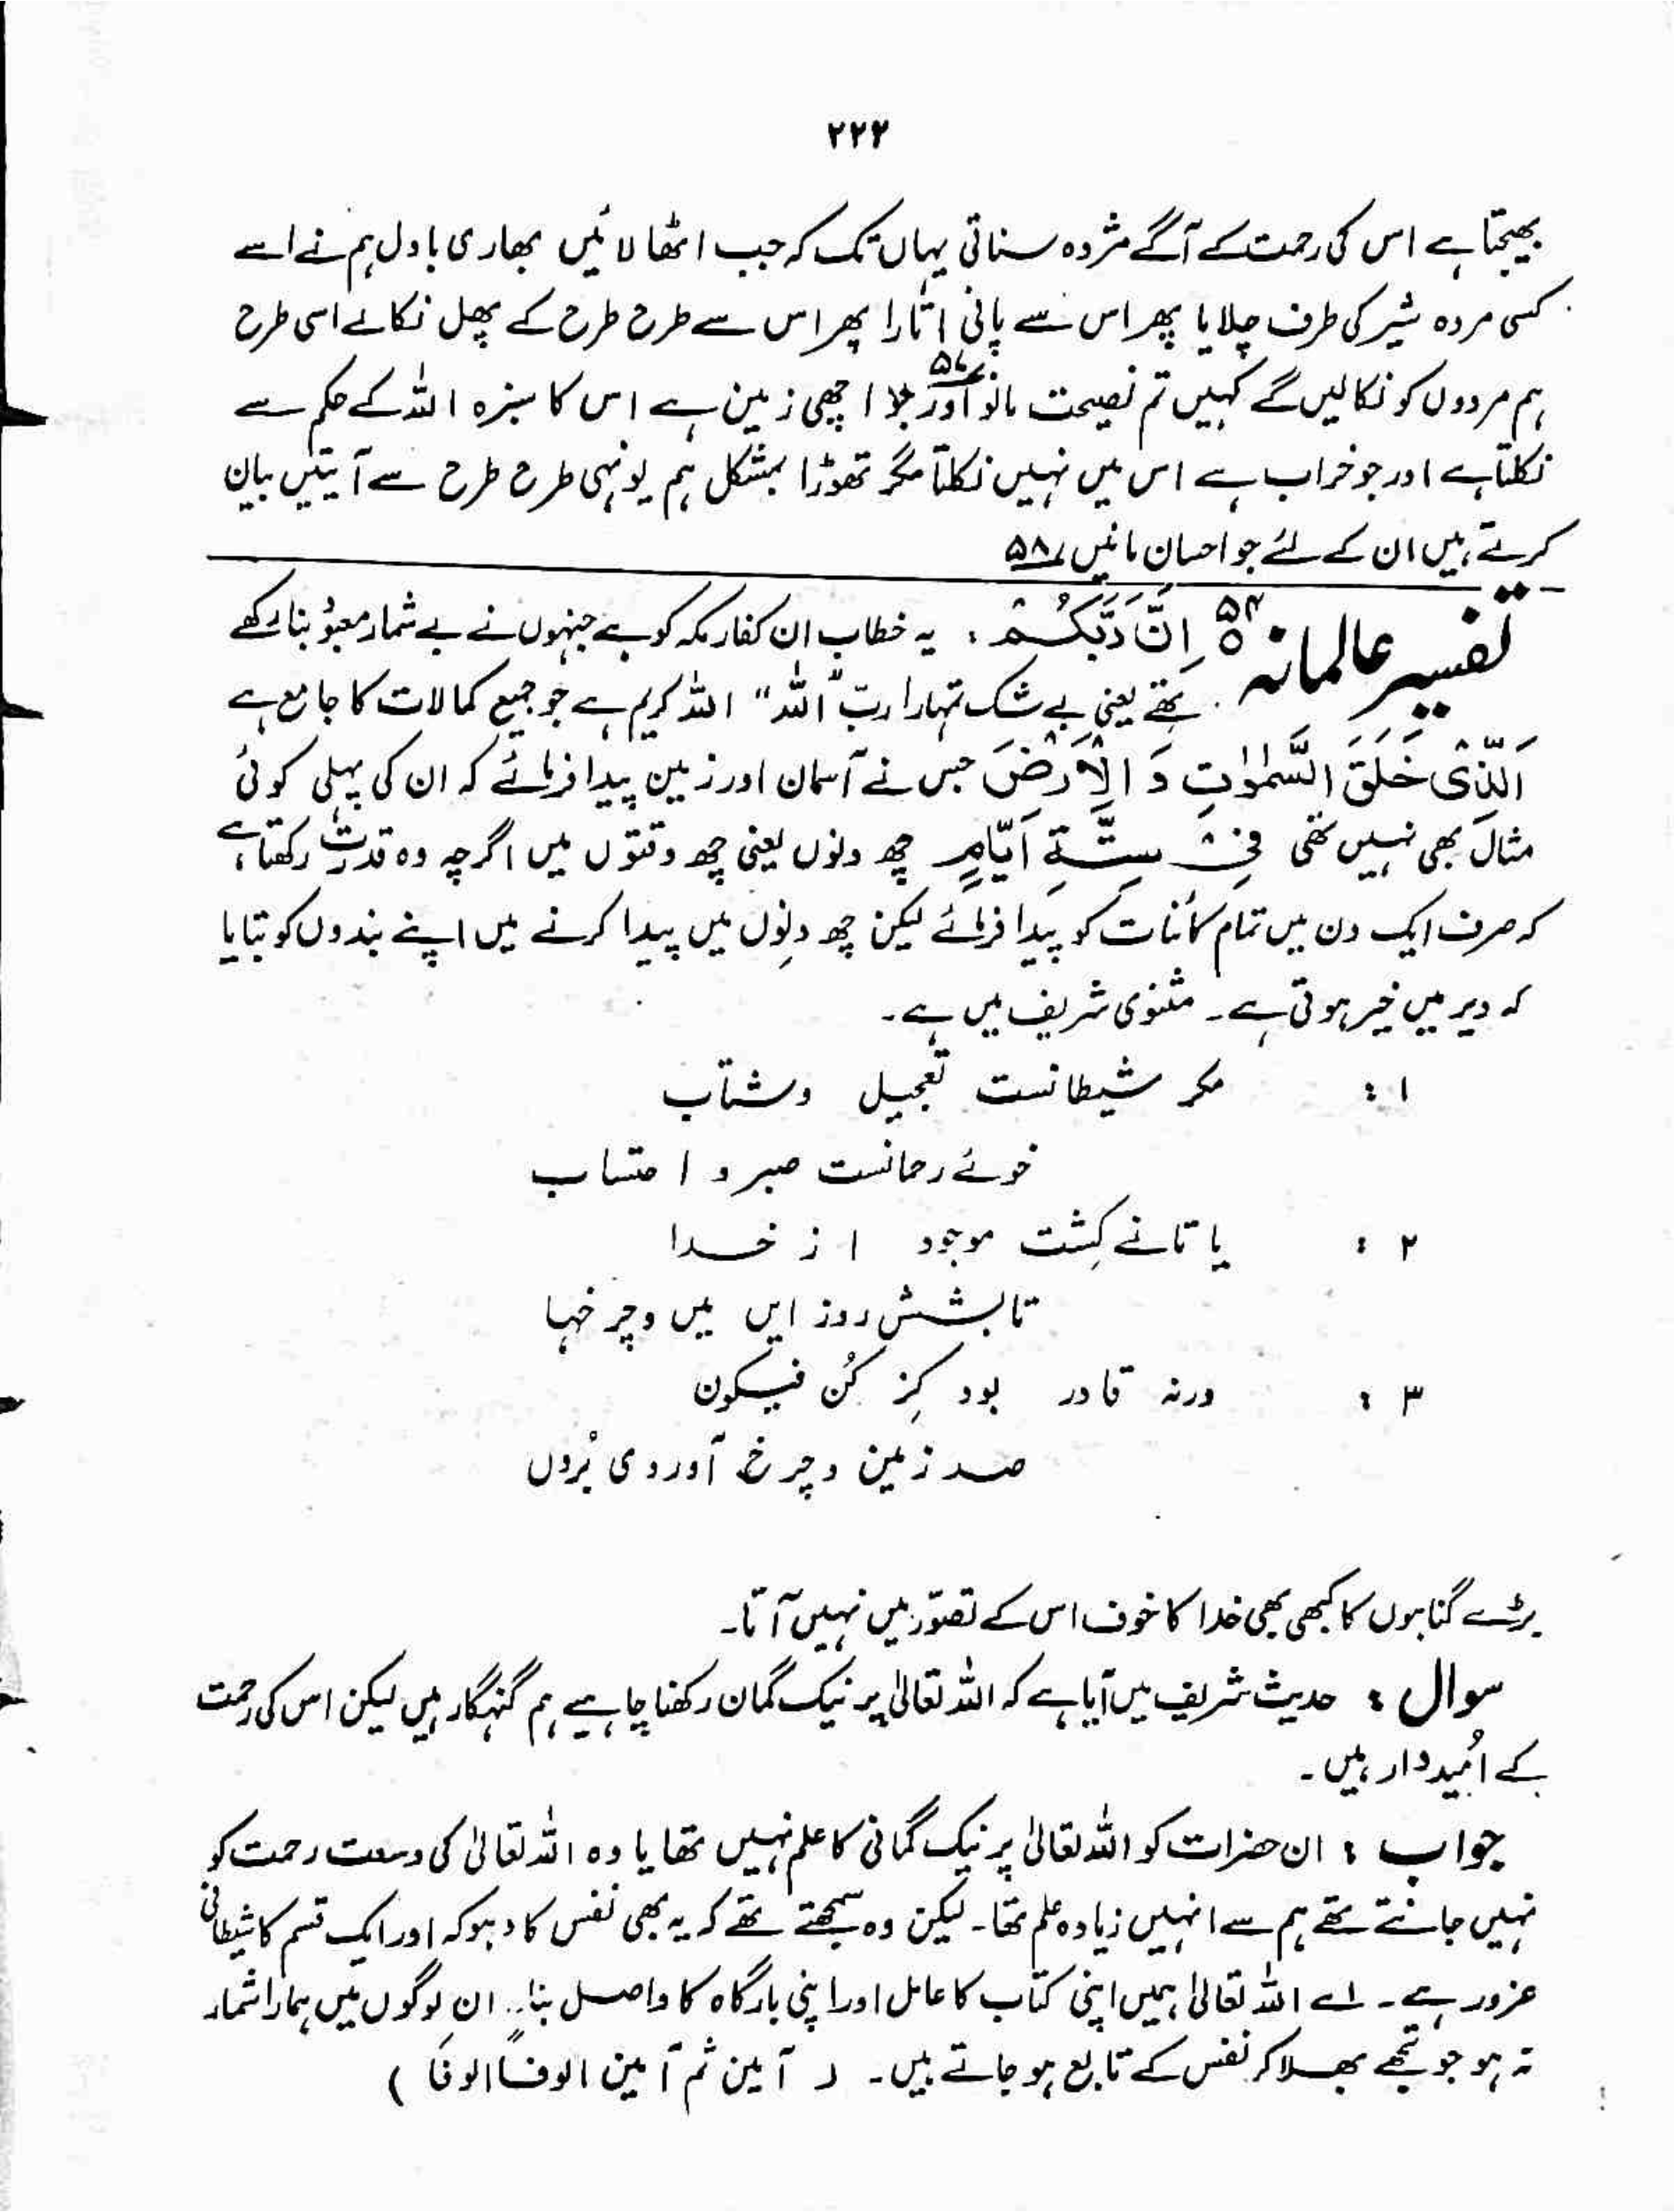 ۲۲۳
بھیجتا ہے اس کی رحمت کے آگے مژدہ سناتی یہاں تک کہ جب اٹھا لائیں بھاری بادل ہم نے اسے
کسی مردہ شہر کی طرف چلایا پھر اس سے پانی اتارا پھر اس سے طرح طرح کے پھل نکالے اسی طرح
ہم مردوں کو نکالیں گے کہیں تم نصیحت مانو ۵۷ اور جو اچھی زمین ہے اس کا سبزہ اللہ کے حکم سے
نکلتا ہے اور جو خراب ہے اس میں نہیں نکلتا مگر تھوڑا بمشکل ہم یونہی طرح طرح سے آیتیں بیان
کرتے ہیں ان کے لئے جو احسان مانیں ۵۸
تفسیر عالمانہ ۵۴ اِنَّ رَبَّکُمْ ، یہ خطاب ان کفار مکہ کو ہے جنہوں نے بے شمار معبوُد بنا رکھے
تھے یعنی بے شک تمہارا ربّ "اللہ" اللہ کریم ہے جو جمیع کمالات کا جامع ہے
الَّذِیْ خَلَقَ السَّمٰوٰتِ وَ الْاَرْضَ جس نے آسمان اور زمین پیدا فرمائے کہ ان کی پہلی کوئی
مثال بھی نہیں تھی فِیْ سِتَّةِ اَیَّامٍ چھ دنوں یعنی چھ وقتوں میں اگرچہ وہ قدرت رکھتا ہے
کہ صرف ایک دن میں تمام کائنات کو پیدا فرمائے لیکن چھ دنوں میں پیدا کرنے میں اپنے بندوں کو بتایا
کہ دیر میں خیر ہوتی ہے ۔ مثنوی شریف میں ہے ۔
۱ : مکر شیطانست تعجیل و شتاب
خوئے رحمانست صبر و احتساب
۲ : یا تانے گشت موجود از خدا
تابشش روز ایں میں و چرخہا
۳ : ورنہ قادر بود کز کُن فیکون
صد زمین و چرخ آوردی بُروں
بڑے گناہوں کا کبھی بھی خدا کا خوف اس کے تصوّر میں نہیں آتا۔
سوال : حدیث شریف میں آیا ہے کہ اللہ تعالیٰ پر نیک گمان رکھنا چاہیے ہم گنہگار ہیں لیکن اس کی رحمت
کے اُمیدوار ہیں ۔
جواب : ان حضرات کو اللہ تعالیٰ پر نیک گمانی کا علم نہیں تھا یا وہ اللہ تعالیٰ کی وسعت رحمت کو
نہیں جانتے تھے ہم سے انہیں زیادہ علم تھا ۔ لیکن وہ سمجھتے تھے کہ یہ بھی نفس کا دہوکہ اور ایک قسم کا شیطانی
غرور ہے ۔ اے اللہ تعالیٰ ہمیں اپنی کتاب کا عامل اور اپنی بارگاہ کا واصل بنا ۔ ان لوگوں میں ہمارا شمار
نہ ہو جو تجھے بھلا کر نفس کے تابع ہو جاتے ہیں ۔ ( آمین ثم آمین الوفاً الوفاً )